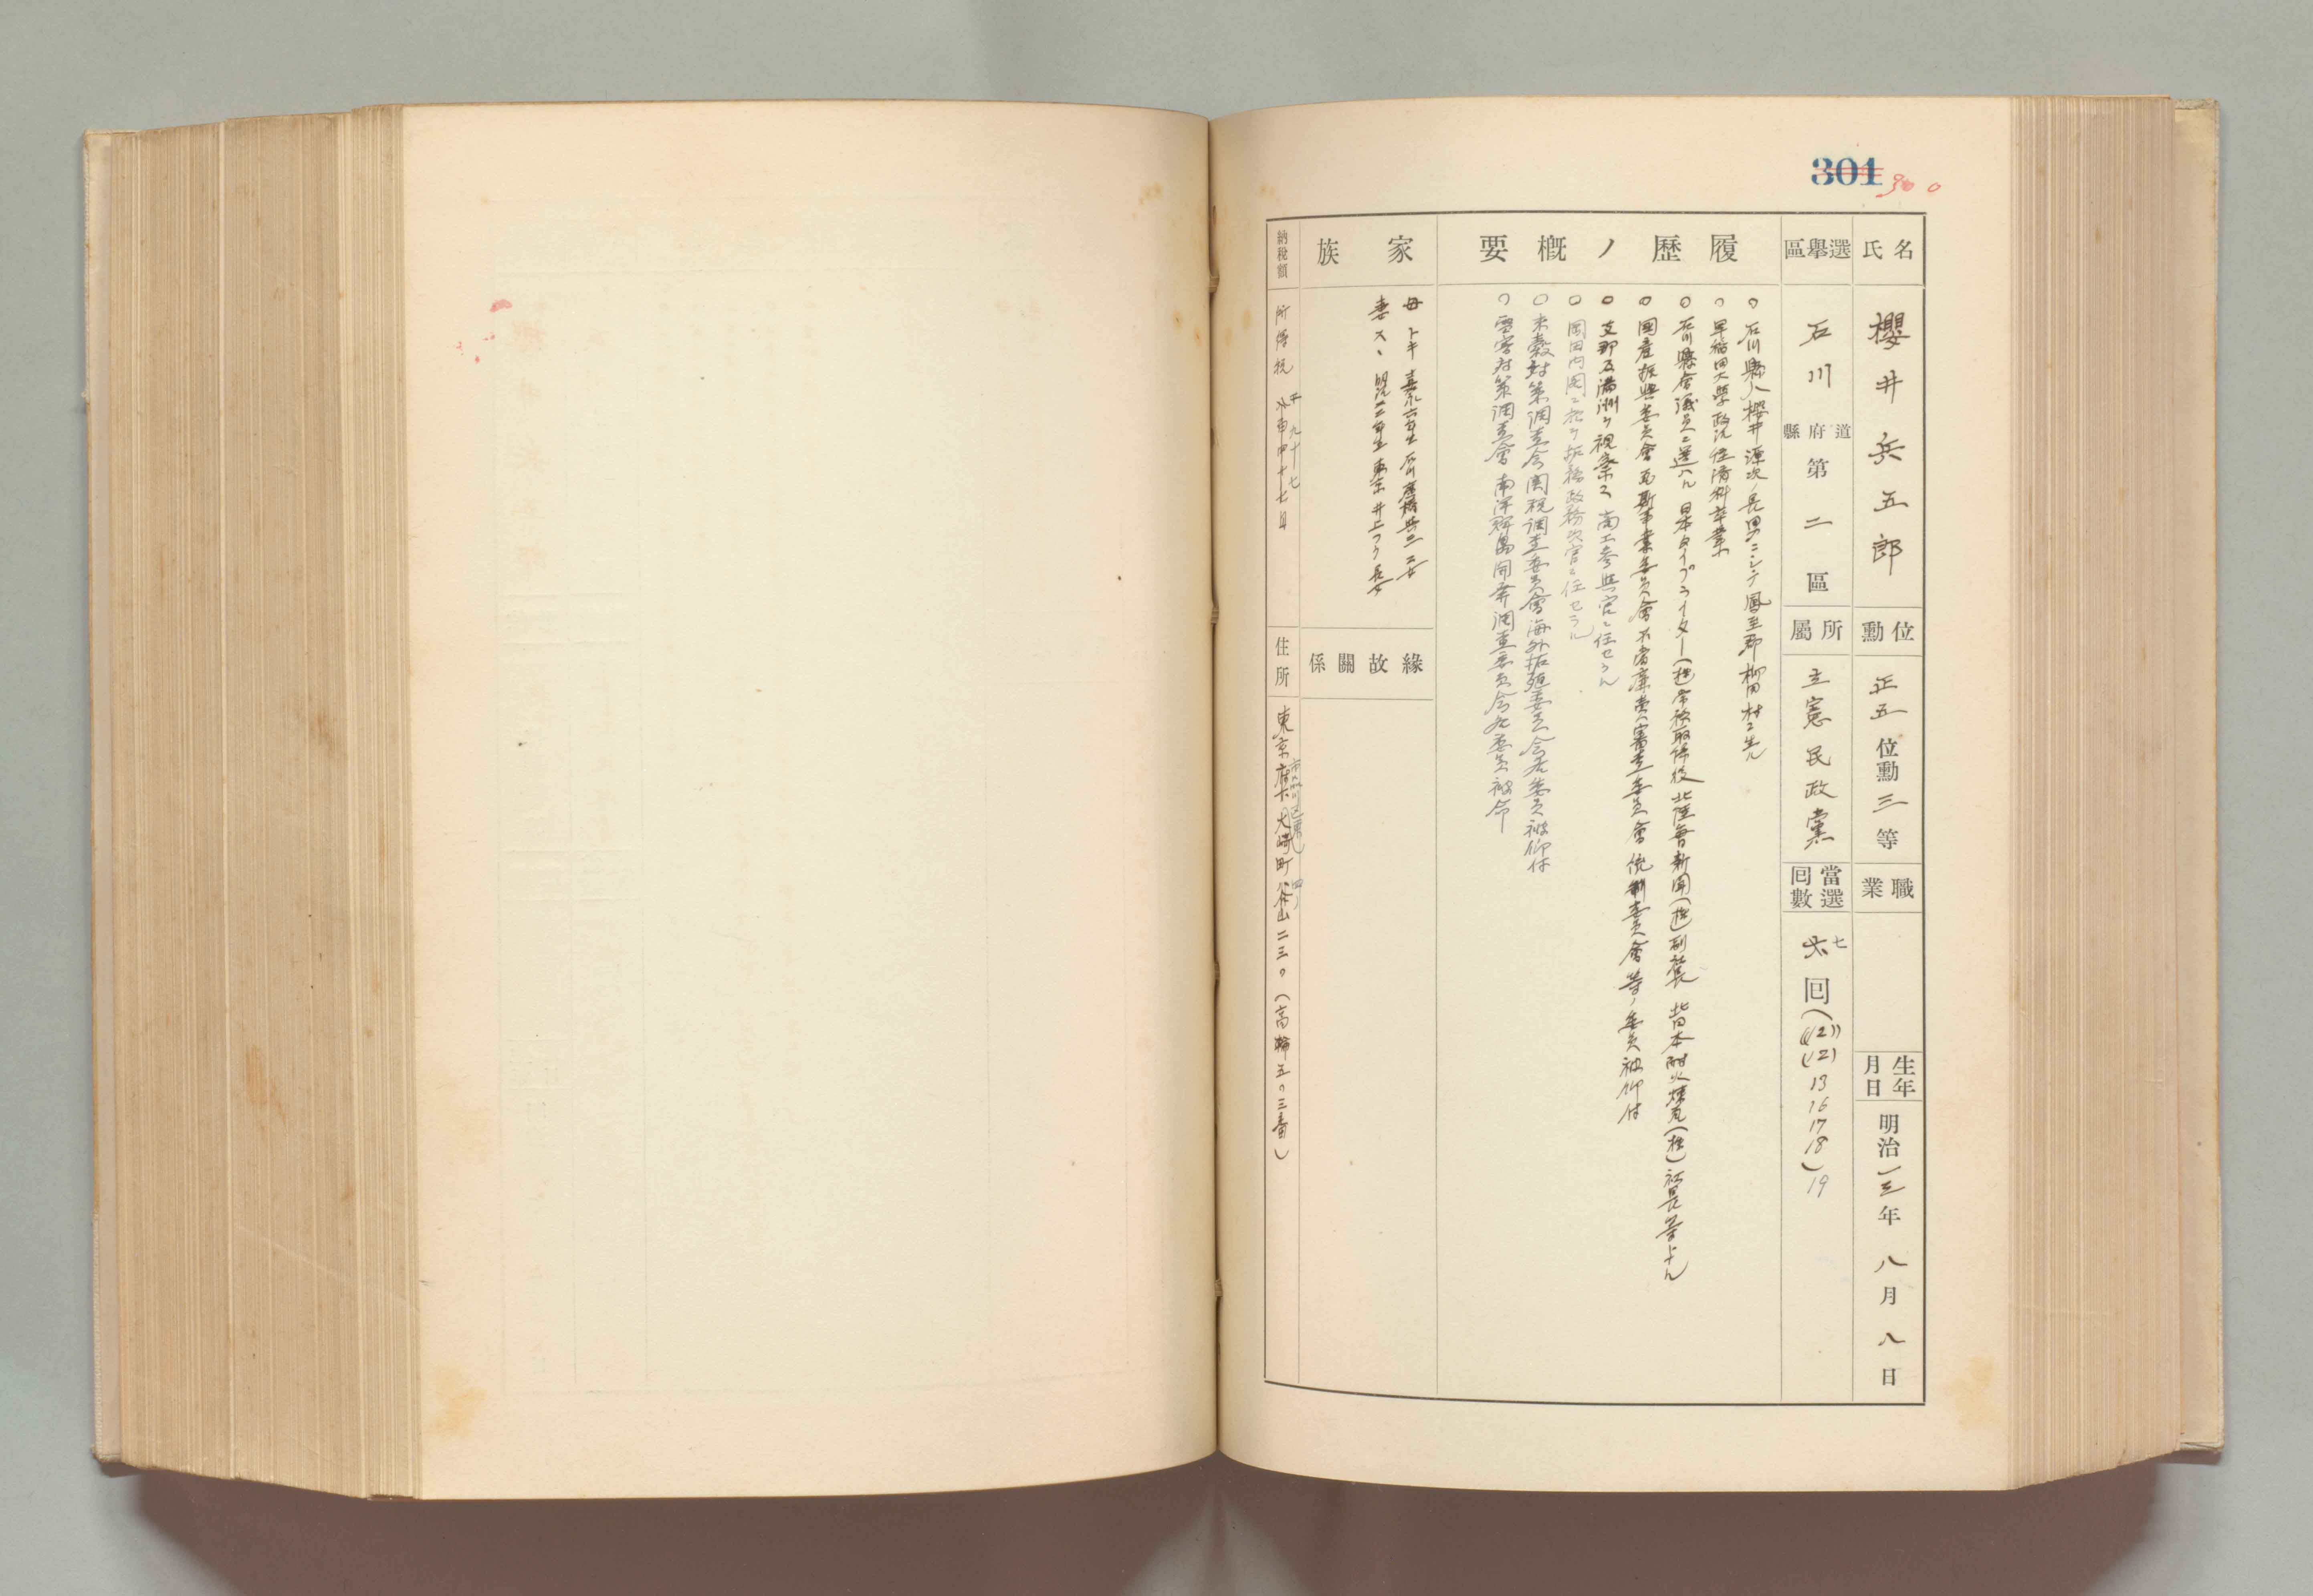 301
300
氏名
櫻井兵五郎
位勲
正五位勲三等
職業
生年月日
明治一三年八月八日
選擧區
石川
道府縣
第二區
所屬
立憲民政黨
當選回數
六 七 回
((2))
(12)
13
16
17
18)
19
履歷ノ概要
○石川縣人櫻井源次ノ長男ニシテ鳳至郡柳田村ニ生ル
○早稲田大學政治経済科卒業
○石川縣會議員ニ選ハル 日本タイプライター(株)常務取締役 北陸毎日新聞(株)副社長 北日本耐火煉瓦(株)社長等トナル
○國産振興委員會 瓦斯事業委員會 不當廉賣審査委員會 統制委員會等ノ委員被仰付
○支那及滿洲ヲ視察ス 商工参與官ニ任セラル
○岡田内閣ニ於テ拓務政務次官ニ任セラル
○米穀対策調査会 関税調査委員會 海外拓殖委員会各委員被仰付
○雪害対策調査會 南洋群島開発調査委員会各委員被命
家族
母 トキ 嘉永六年生 石川
妻 スヽ 明治二二年生 東京 井上つう長女
緣故關係
納稅額
所得税
九十七
住所
東京府下大崎町谷山二三〇(高輪五〇三番)